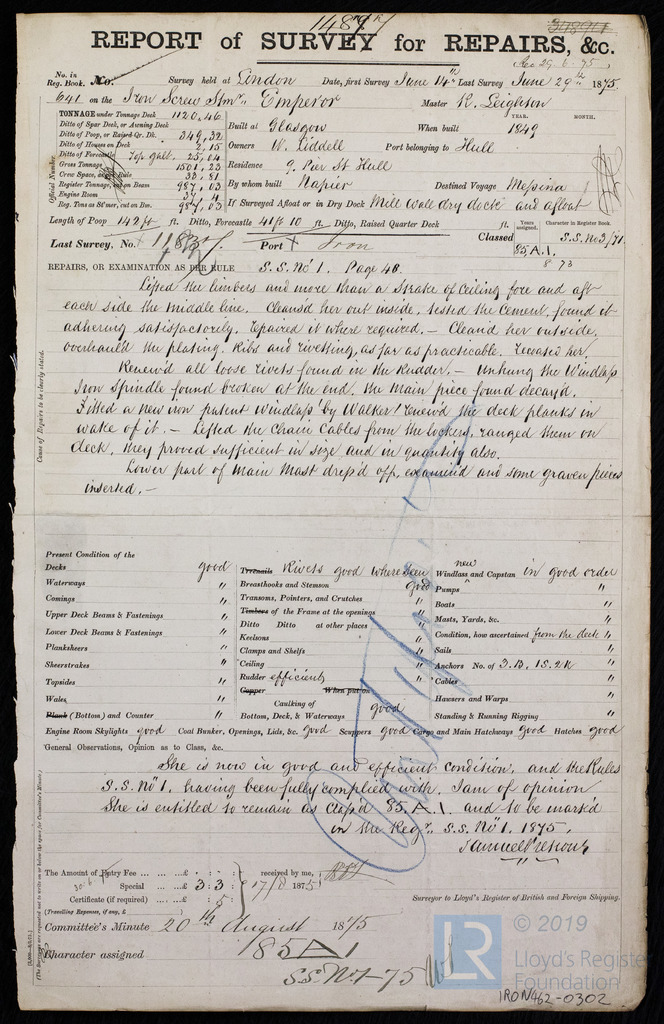 REPORT of SURVEY for REPAIRS, &c.
Rec 29.6.75
No. in Reg. Book. No. Survey held at London Date, first Survey June 14th Last Survey June 29th 1875
641 on the Iron Screw Stmr. Emperor Master R. Leighton
TONNAGE under Tonnage Deck 1120.46
Ditto of Spar Deck, or Awning Deck
Ditto of Poop, or Raised Qr. Dk. 349.32
Ditto of Houses on Deck 2.15
Ditto of Forecastle Top galt. 25.04
Gross Tonnage 1501.23
Crew Space, as per Rule
Register Tonnage, cut on Beam 987.03
Engine Room
Reg. Tons as 8d mer, cut on Beam
Official Number
YEAR. MONTH.
Built at Glasgow When built 1849
Owners W. Liddell Port belonging to Hull
Residence 9. Pier St Hull
By whom built Napier Destined Voyage Messina
If Surveyed Afloat or in Dry Dock Mill wall dry dock and afloat
Length of Poop 142 ft ft. Ditto, Forecastle 41 ft 10 ft. Ditto, Raised Quarter Deck ft.
Years assigned. Character in Register Book.
Last Survey, No. Port Iron Classed 85.A.1. S.S. No 3/71.
8 73
REPAIRS, OR EXAMINATION AS PER RULE S.S. No 1. Page 40.
Lifted the limbers and more than a strake of ceiling fore and aft
each side the middle line. Cleans'd her out inside, tested the Cement, found it
adhering satisfactorily. Repaired it where required. — Clean'd her outside.
overhaul'd the plating. Ribs and rivetting, as far as practicable. recoated her.
Renew'd all loose rivets found in the Rudder. — Unhung the Windlass
Iron Spindle found broken at the end. the Main piece found decay'd.
Fitted a new iron patent Windlass by Walker! renew'd the deck planks in
wake of it. — Lifted the Chain Cables from the lockers. ranged them on
deck, they proved sufficient in size and in quantity also.
Lower part of Main Mast drep'd off, examined and some graven pieces
inserted. —
Cause of Repairs to be clearly stated.
Present Condition of the
Decks good
Waterways "
Comings "
Upper Deck Beams & Fastenings "
Lower Deck Beams & Fastenings "
Planksheers "
Sheerstrakes "
Topsides "
Wales "
Plank (Bottom) and Counter "
Treenails Rivets good where seen
Breasthooks and Stemson good
Transoms, Pointers, and Crutches "
Timbers of the Frame at the openings "
Ditto Ditto at other places "
Keelsons "
Clamps and Shelfs "
Ceiling "
Rudder efficient "
Copper When put on
Caulking of
Bottom, Deck, & Waterways good
new
Windlass and Capstan in good order
Pumps "
Boats "
Masts, Yards, &c. "
Condition, how ascertained from the deck "
Sails "
Anchors No. of 3.B. 1S. 2K "
Cables "
Hawsers and Warps "
Standing & Running Rigging "
Engine Room Skylights good Coal Bunker, Openings, Lids, &c. good Scuppers good Cargo and Main Hatchways good Hatches good
General Observations, Opinion as to Class, &c.
She is now in good and efficient condition, and the Rules
S.S. No 1. having been fully complied with. I am of opinion
She is entitled to remain as Class'd 85.A.1. and to be mark'd
in the Regr. S.S. No 1. 1875.
The Amount of Entry Fee ... ... £ : : received by me,
Special ... ... £ 3 : 3 : 17/8 1875
Certificate (if required) ... £ : 5
(Travelling Expenses, if any, £ )
Surveyor to Lloyd's Register of British and Foreign Shipping.
Committee's Minute 20th August 1875
Character assigned 85 A 1
S.S. No 1-75
LR
© 2019
Lloyd's Register
Foundation
IRON462-0302